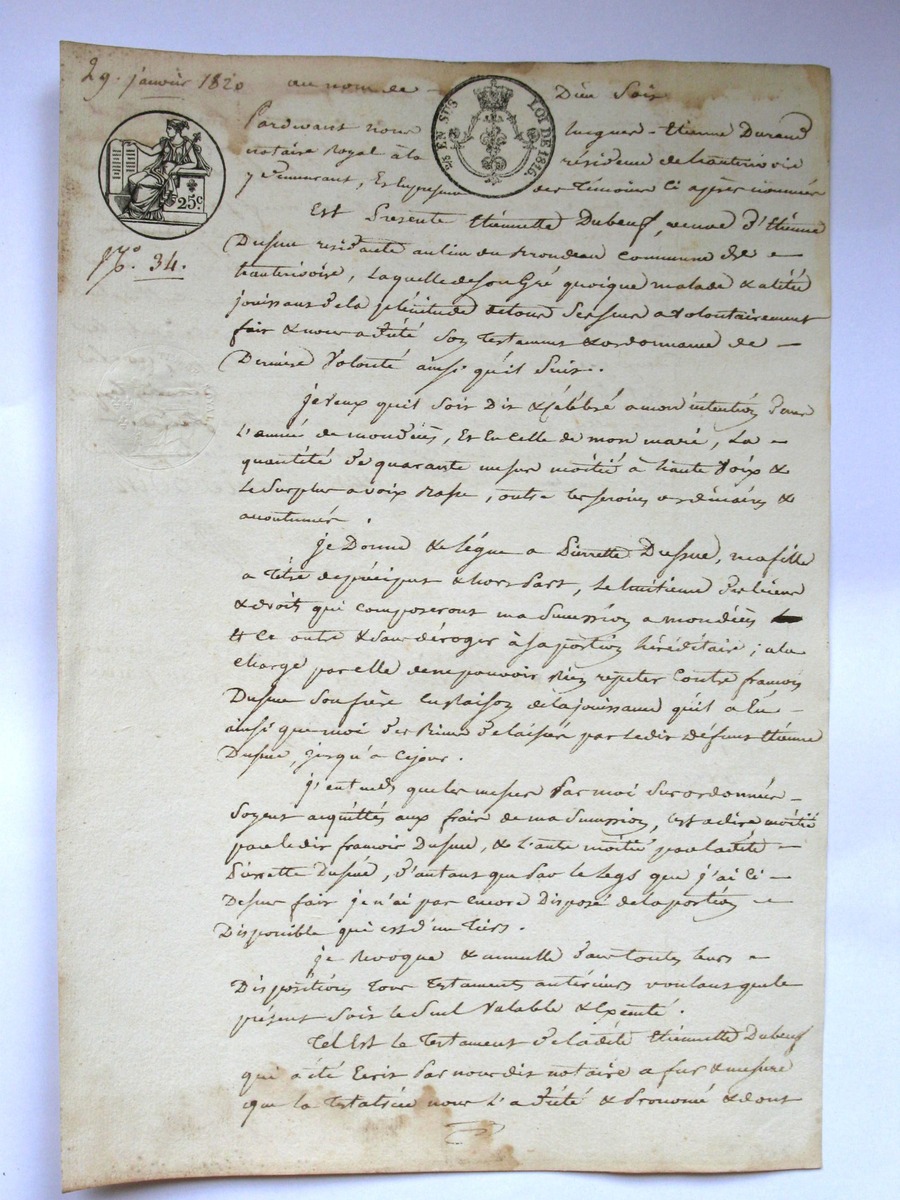 29. janvier 1820 au nom de Dieu Soit
EN SUS LOI DE 1816.
Pardevant nous Jacques-Etienne Durand
notaire Royal à la résidence de hauterivoire
y demeurant, Et En presence des témoins Ci après nommés
25c
Est Presente Etiennette Dubeuf, veuve d'Etienne
No. 34.
Dusine residante au lieu du Rrondeau commune de
hauterivoire, Laquelle de son Gré quoique malade & alitée
jouissant de la plénitude de tous Ses sens a volontairement
fait & nous a dicté Son Testament & ordonnance de
Derniere Volonté ainsi qu'il Suit.
je veux qu'il soit Dit & Célébré a mon intention dans
L'année de mon décès, Et En celle de mon mari, La
quantité de quarante messes moitié à haute Voix &
Le Surplus a voix Basse, outre les services ordinaires &
accoutumés.
je Donne & légue a Pierrette Dusine, ma fille
a titre de préciput & hors Part, Le huitième des biens
& droits qui composeront ma Succession a mon décès
Et Ce outre & sans déroger à sa portion héréditaire ; a la
charge par elle de ne pouvoir Rien repeter Contre francois
Dusine Son frère En Raison de la jouissance qu'il a Eu
ainsi que moi des Biens delaissés par le dit défunt Etienne
Dusine, jusqu'à ce jour.
j'entends que les messes Par moi Sus ordonnées
Soyent acquittées aux frais de ma Succession, C'est a dire moitié
par le dit francois Dusine, & L'autre moitié par la dite
Pierrette Dusine, d'autant que Par le Legs que j'ai Ci
Dessus fait je n'ai pas encore Disposé de la portion
Disponible qui est d'un Tiers.
je Revoque & annulle dans toutes leurs
Dispositions Tous Testaments antérieurs voulant que le
présent Soit le Seul Valable & Executé.
Tel Est le Testament de la dite Etiennette Dubeuf
qui a été Ecrit Par nous dit notaire a fur & mesure
que la Testatrice nous L'a dicté & Prononcé & dont